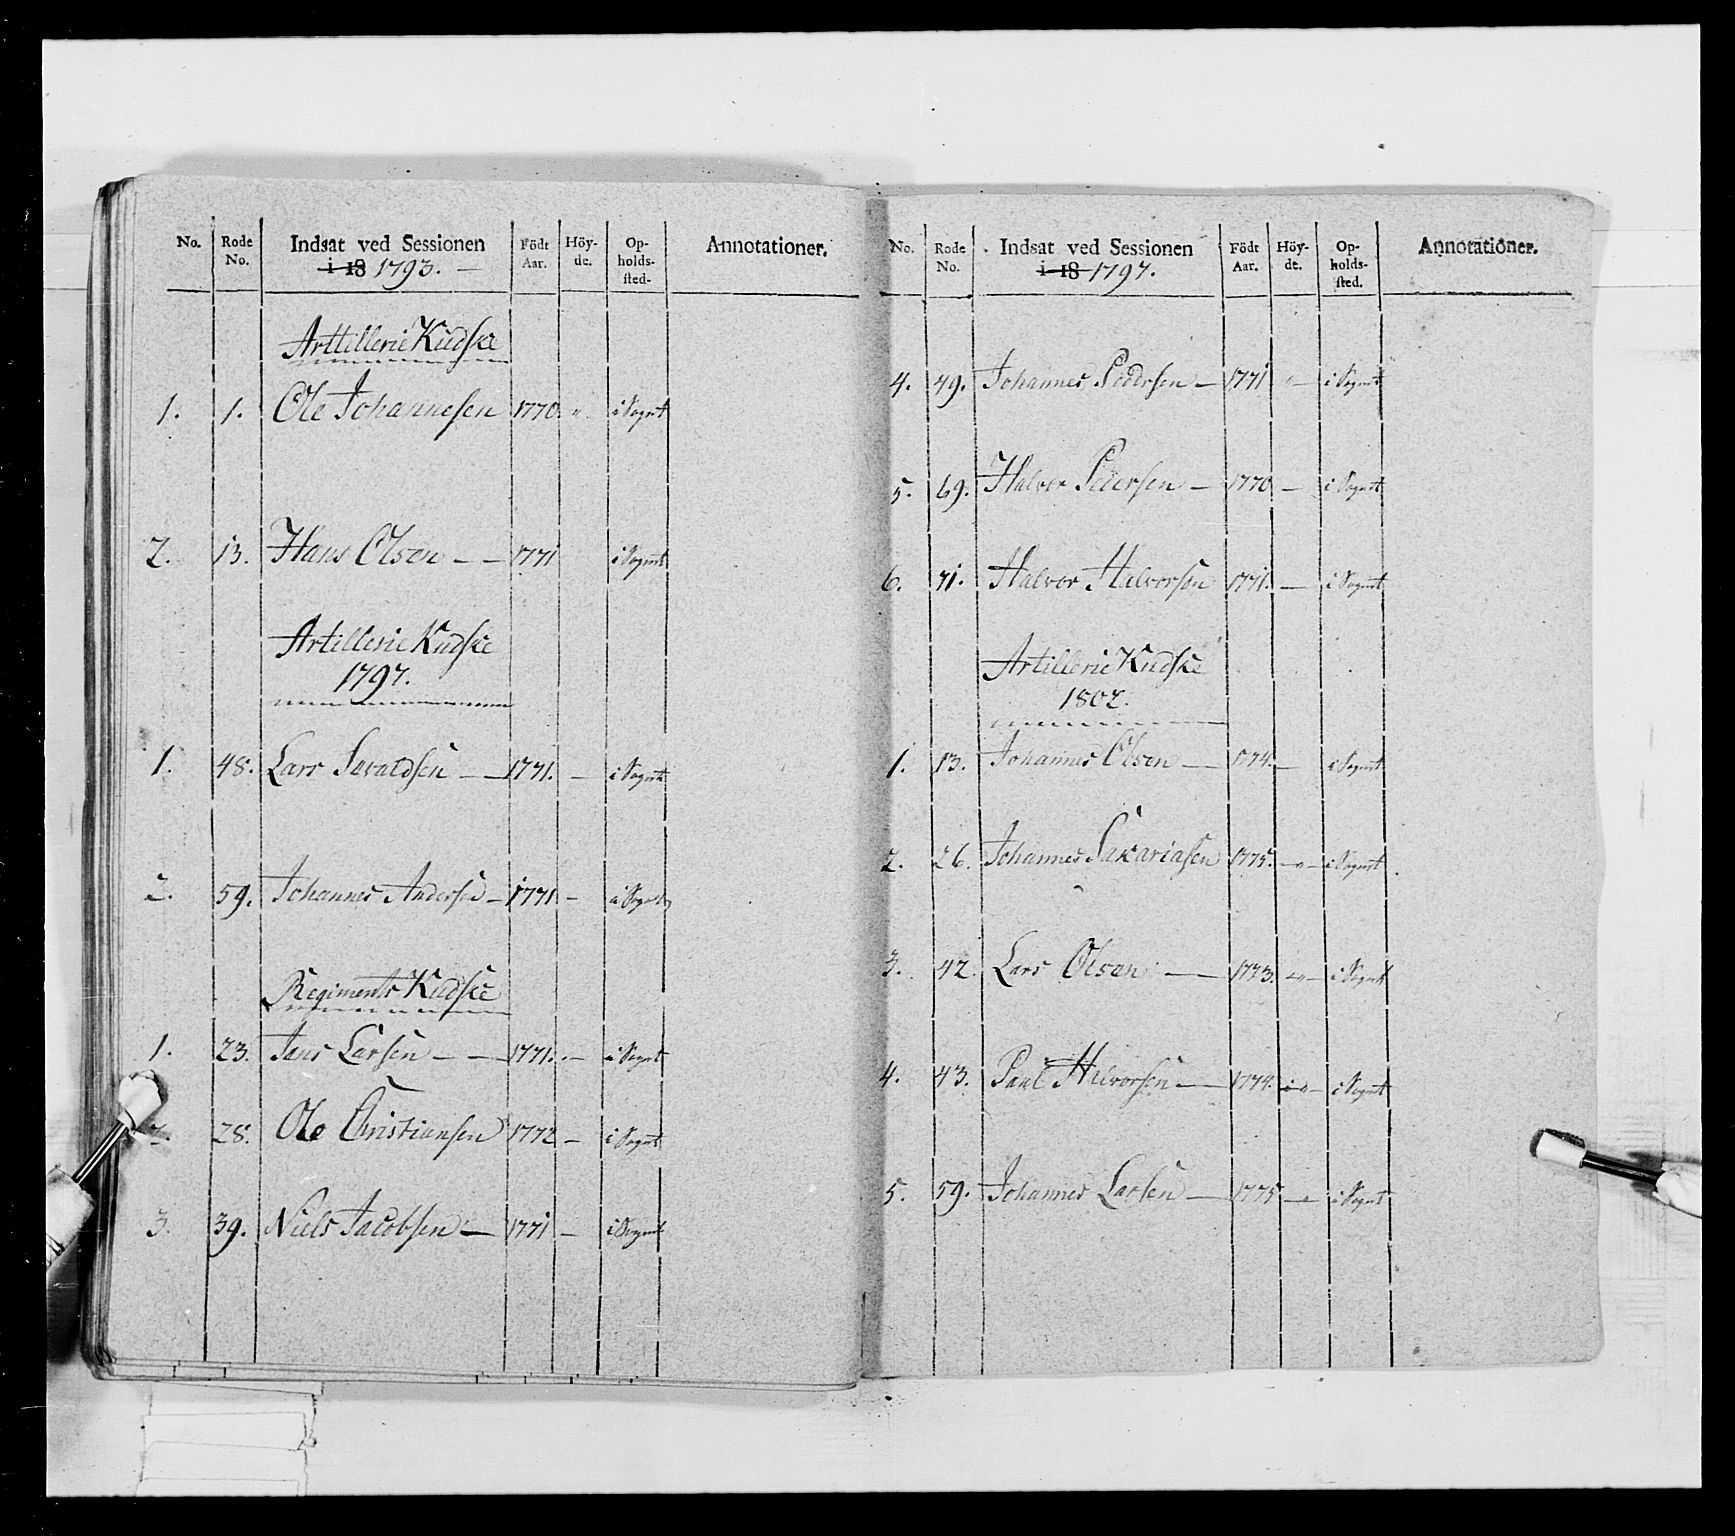 No. Rode No. Indsat ved Sessionen i 18 1793. — Födt Aar. Höy-de. Op-holds-sted- Annotationer.
Arttillerie Kudske
1. 1. Ole Johannesen 1770. " i Sognet
2. 13. Hans Olsen — — 1771 i Sognet
Artillerie Kudske
1797.
1. 48. Lars — — 1771. — i Sognet
2. 59. Johannes Andersen — 1771 — i Sognet
Regiments Kudske
1. 23. Jens Larsen — — 1771. — i Sognet
2. 28. Ole Christiansen 1772 — i Sognet
3. 39. Niels Jacobsen — 1771 — i Sognet
No. Rode No. Indsat ved Sessionen i 18 1797. Födt Aar. Höy-de. Op-holds-sted. Annotationer.
4. 49. Johannes Pedersen — 1771 — i Sognet
5. 69. Halvor Pedersen — 1770 — i Sognet
6. 71. Halvor Halvorsen 1771. — i Sognet
Artillerie Kudske
1802.
1. 13. Johannes Olsen — 1774. — i Sognet
2. 26. Johannes Sakariasen 1775. —"— i Sognet
3. 42 Lars Olsen — 1773. —"— i Sognet
4. 43. Paul Halvorsen — 1774. —"— i Sognet
5. 59. Johannes Larsen — 1775 —"— i Sognet